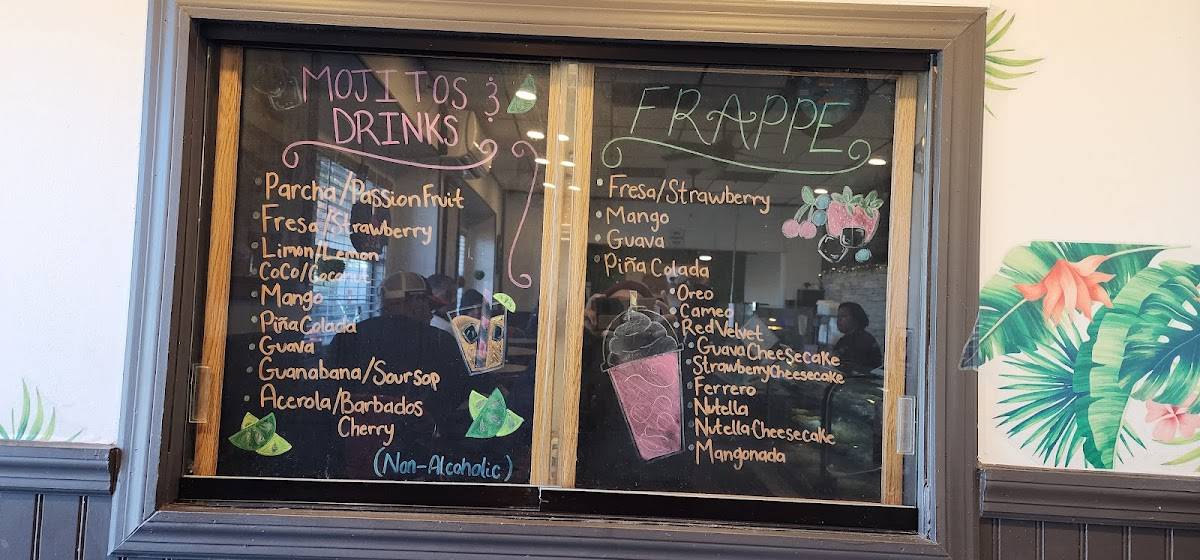 MOJITOS &
DRINKS
Parcha/Passion Fruit
Fresa/Strawberry
Limon/Lemon
CoCo/Coconut
Mango
Piña Colada
Guava
Guanabana/Soursop
Acerola/Barbados
Cherry
(Non-Alcoholic)
FRAPPE
Fresa/Strawberry
Mango
Guava
Piña Colada
Oreo
Cameo
Red Velvet
Guava Cheesecake
Strawberry Cheesecake
Ferrero
Nutella
Nutella Cheesecake
Mangonada